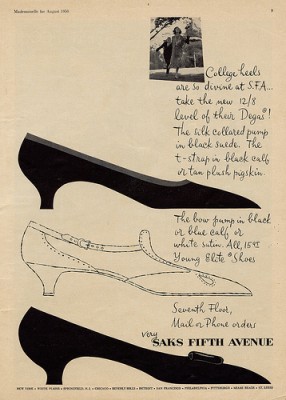 Mademoiselle for August 1960
College heels
are so divine at S.F.A...
take the new 12/8
level of their Degas®!
The silk collared pump
in black suede. The
t-strap in black calf
or tan plush pigskin.
The bow pump in black
or blue calf, or
white satin. All, 1595
Young Elite® Shoes
Seventh Floor,
Mail or Phone orders
very
SAKS FIFTH AVENUE
NEW YORK • WHITE PLAINS • SPRINGFIELD, N. J. • CHICAGO • BEVERLY HILLS • DETROIT • SAN FRANCISCO • PHILADELPHIA • PITTSBURGH • MIAMI BEACH • FT. LAUD.